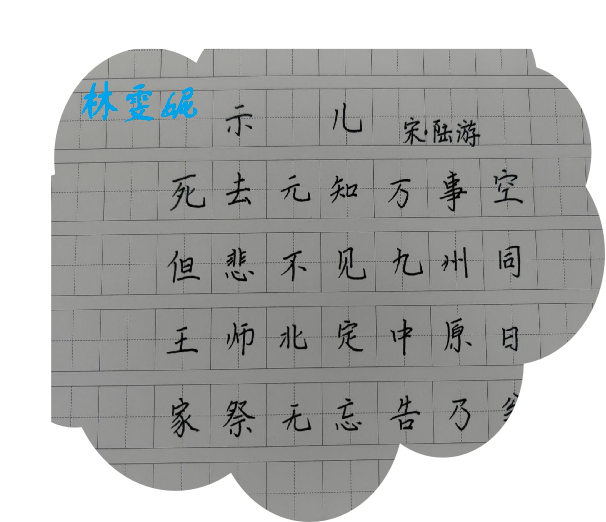 林雯妮
示 儿 宋·陆游
死去元知万事空
但悲不见九州同
王师北定中原日
家祭无忘告乃